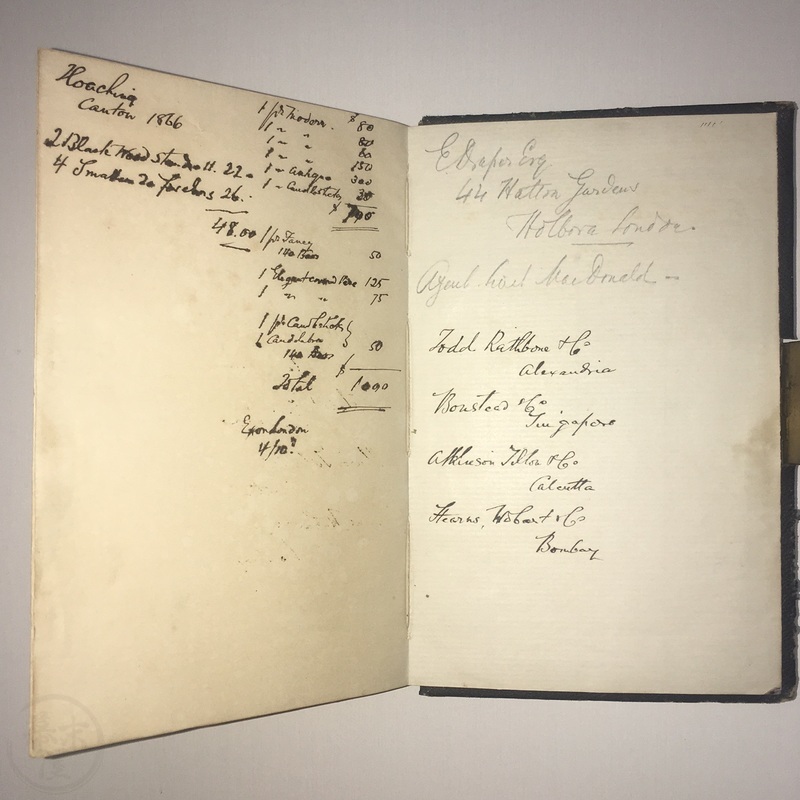 Hoaching
Canton 1866
2 Black Wood stands 11. 22 -
4 Smaller do for chins 26.
48.00
1 pr Modern. $ 80
1 " " 80
1 " " 60
1 " " 150
1 " Antique 300
1 " Candlesticks 30
$
1 pr Fancy
50
1 Elegant covered Vase 125
1 " " 75
1 pr Candlesticks
Candelabra
50
Total $ 1000
Ex on London
4/10
E Draper Esq
44 Hatton Gardens
Holborn London.
Agent MacDonald -
Todd Rathbone & Co
Alexandria
Boustead & Co
Singapore
Atkinson Tilton & Co
Calcutta
Hearns, Hobart & Co
Bombay